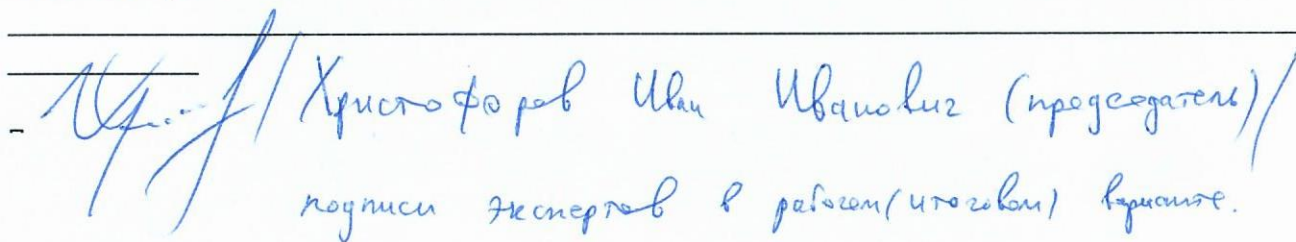 / Христофоров Иван Иванович (председатель) /
подписи экспертов в рабочем (итоговом) варианте.